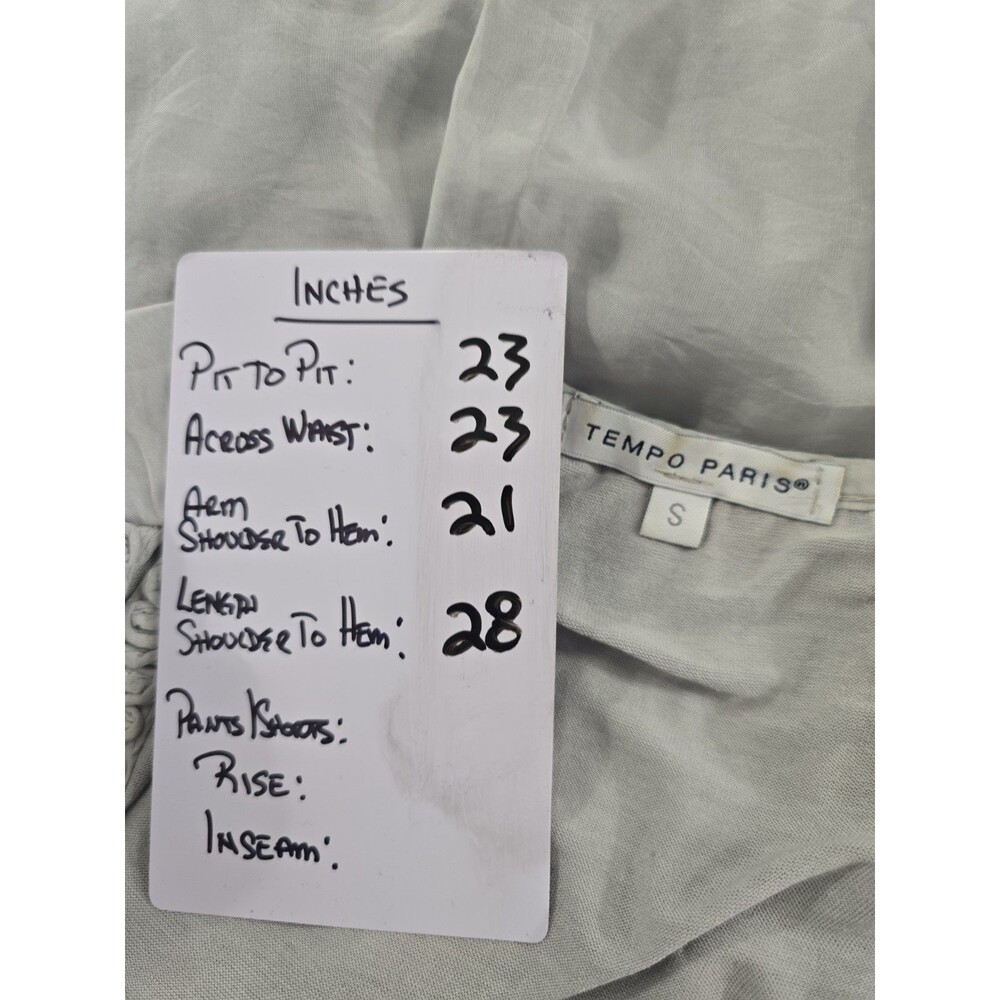 INCHES
PIT TO PIT: 23
ACROSS WAIST: 23
ARM
SHOULDER TO HEM: 21
LENGTH
SHOULDER TO HEM: 28
PANTS/SHORTS:
RISE:
INSEAM:
TEMPO PARIS®
S